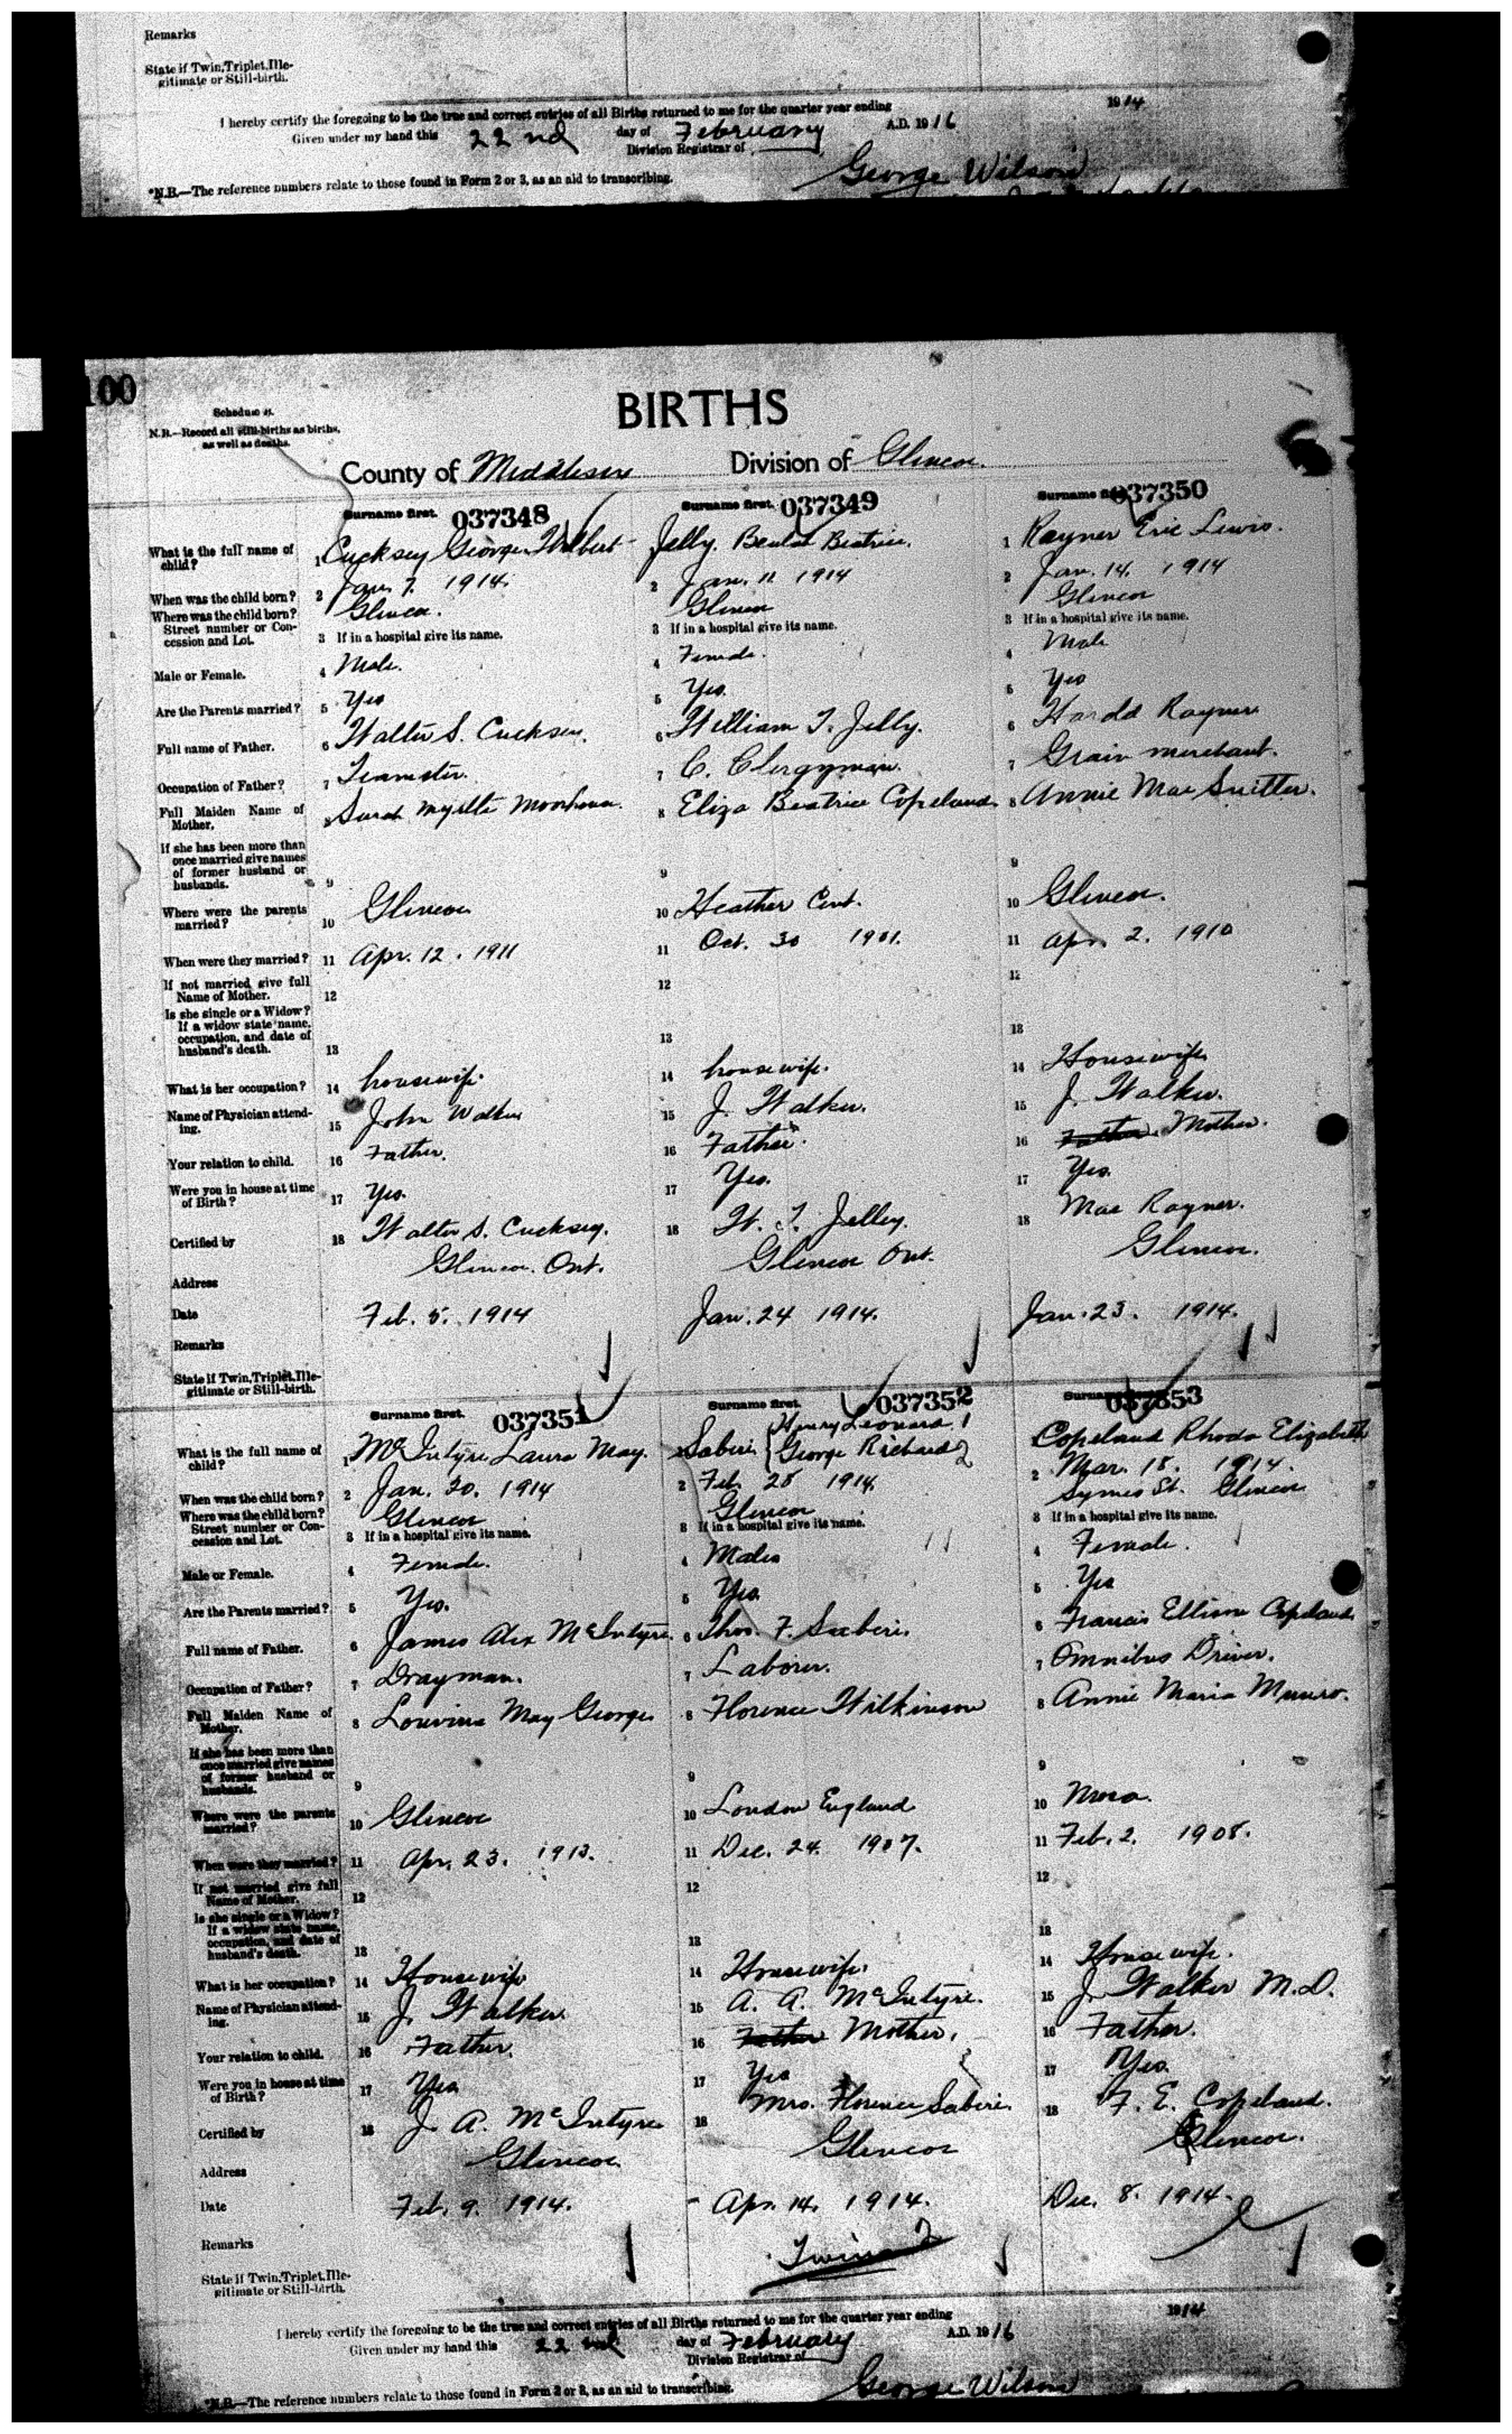 Remarks
State if Twin, Triplet, Ille-
gitimate or Still-birth.
I hereby certify the foregoing to be the true and correct entries of all Births returned to me for the quarter year ending 1914
Given under my hand this 22nd day of February A.D. 1916
Division Registrar of
George Wilson
*N.B.—The reference numbers relate to those found in Form 2 or 3, as an aid to transcribing.
100
BIRTHS
N.B.—Record all still-births as births,
as well as deaths.
County of Middlesex Division of Glencoe.
Surname first. 037348 Surname first. 037349 Surname first 037350
What is the full name of
child? 1 Cucksey George Wilbert Jelly. Beulah Beatrice. 1 Rayner Eric Lewis.
When was the child born? 2 Jan. 7. 1914. 2 Jan. 11 1914 2 Jan. 14. 1914
Where was the child born? Glencoe. Glencoe Glencoe
Street number or Con-
cession and Lot. 3 If in a hospital give its name. 3 If in a hospital give its name. 3 If in a hospital give its name.
Male or Female. 4 Male. 4 Female. 4 Male
Are the Parents married? 5 Yes 5 Yes. 5 Yes
Full name of Father. 6 Walter S. Cucksey. 6 William T. Jelly. 6 Harold Rayner
Occupation of Father? 7 Teamster. 7 C. Clergyman. 7 Grain merchant.
Full Maiden Name of
Mother. 8 Sarah Myrtle 8 Eliza Beatrice Copeland 8 Annie Mae Suitter.
If she has been more than
once married give names
of former husband or
husbands. 9 9 9
Where were the parents
married? 10 Glencoe 10 Heather Cent. 10 Glencoe.
When were they married? 11 Apr. 12. 1911 11 Oct. 30 1901. 11 Apr. 2. 1910
If not married give full
Name of Mother. 12 12 12
Is she single or a Widow?
If a widow state name,
occupation, and date of
husband's death. 13 13 13
What is her occupation? 14 housewife. 14 housewife. 14 Housewife
Name of Physician attend-
ing. 15 John Walker 15 J. Walker. 15 J. Walker.
Your relation to child. 16 Father. 16 Father. 16 Father. Mother.
Were you in house at time
of Birth? 17 Yes. 17 Yes. 17 Yes.
Certified by 18 Walter S. Cucksey. 18 W. T. Jelley. 18 Mae Rayner.
Address Glencoe. Ont. Glencoe Ont. Glencoe.
Date Feb. 5. 1914 Jan. 24 1914. Jan. 23. 1914.
Remarks
State if Twin, Triplet, Ille-
gitimate or Still-birth.
Surname first. 037351 Surname first. 037352 037353
What is the full name of
child? 1 McIntyre Laura May. Saberi { Henry Leonard 1 George Richard 2 Copeland Rhoda Elizabeth
When was the child born? 2 Jan. 30. 1914 2 Feb. 28 1914. 2 Mar. 18. 1914.
Where was the child born? Glencoe Glencoe Symes St. Glencoe
Street number or Con-
cession and Lot. 3 If in a hospital give its name. 3 If in a hospital give its name. 3 If in a hospital give its name.
Male or Female. 4 Female. 4 Males 4 Female.
Are the Parents married? 5 Yes. 5 Yes. 5 Yes
Full name of Father. 6 James Alex McIntyre. 6 Thos. F. Saberi. 6 Francis Ellison Copeland
Occupation of Father? 7 Drayman. 7 Laborer. 7 Omnibus Driver.
Full Maiden Name of
Mother. 8 Louvina May George 8 Florence Wilkinson 8 Annie Maria Munro.
If she has been more than
once married give names
of former husband or
husbands. 9 9 9
Where were the parents
married? 10 Glencoe 10 London England 10 Mosa.
When were they married? 11 Apr. 23. 1913. 11 Dec. 24. 1907. 11 Feb. 2. 1908.
If not married give full
Name of Mother. 12 12 12
Is she single or a Widow?
If a widow state name,
occupation, and date of
husband's death. 13 13 13
What is her occupation? 14 Housewife 14 Housewife. 14 Housewife.
Name of Physician attend-
ing. 15 J. Walker. 15 A. A. McIntyre. 15 J. Walker M.D.
Your relation to child. 16 Father. 16 Father Mother. 16 Father.
Were you in house at time
of Birth? 17 Yes 17 Yes 17 Yes.
Certified by 18 J. A. McIntyre 18 Mrs. Florence Saberi. 18 F. E. Copeland.
Address Glencoe Glencoe Glencoe.
Date Feb. 9. 1914. Apr. 14. 1914. Dec. 8. 1914.
Remarks
State if Twin, Triplet, Ille-
gitimate or Still-birth. Twins 2
I hereby certify the foregoing to be the true and correct entries of all Births returned to me for the quarter year ending 1914
Given under my hand this 22nd day of February A.D. 1916
Division Registrar of
George Wilson
*N.B.—The reference numbers relate to those found in Form 2 or 3, as an aid to transcribing.